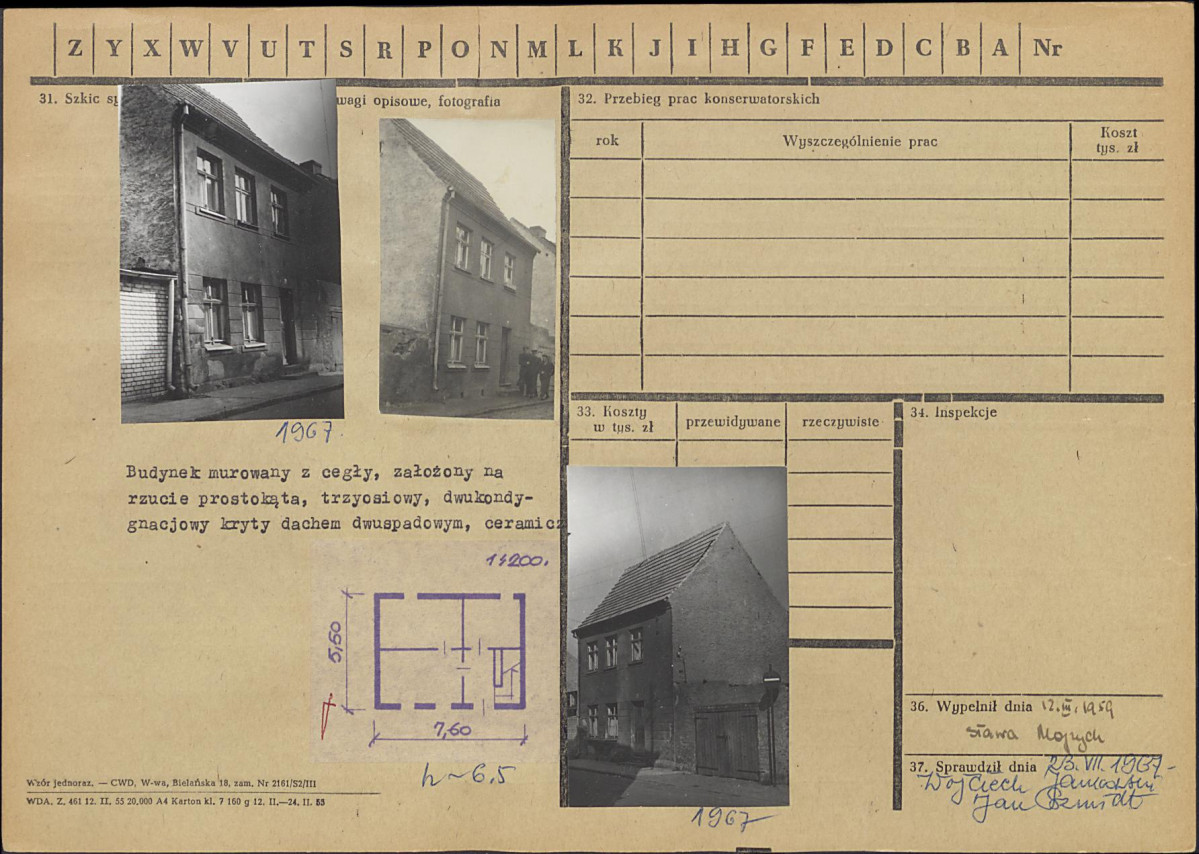 Z Y X W V U T S R P O N M L K J I H G F E D C B A Nr
31. Szkic wagi opisowe, fotografia
1967.
Budynek murowany z cegły, założony na
rzucie prostokąta, trzyosiowy, dwukondy-
gnacjowy kryty dachem dwuspadowym, ceramicz
1:200.
5,60
7,60
h~6.5
Wzór jednoraz. — CWD, W-wa, Bielańska 18, zam. Nr 2161/S2/III
WDA. Z. 461 12. II. 55 20,000 A4 Karton kl. 7 160 g 12. II.—24. II. 55
32. Przebieg prac konserwatorskich
rok
Wyszczególnienie prac
Koszt
tys. zł
33. Koszty
w tys. zł
przewidywane
rzeczywiste
34. Inspekcje
1967
36. Wypełnił dnia 12.III.1959
Sława
37. Sprawdził dnia 23.VII.1967
Wojciech
Jan Szmidt